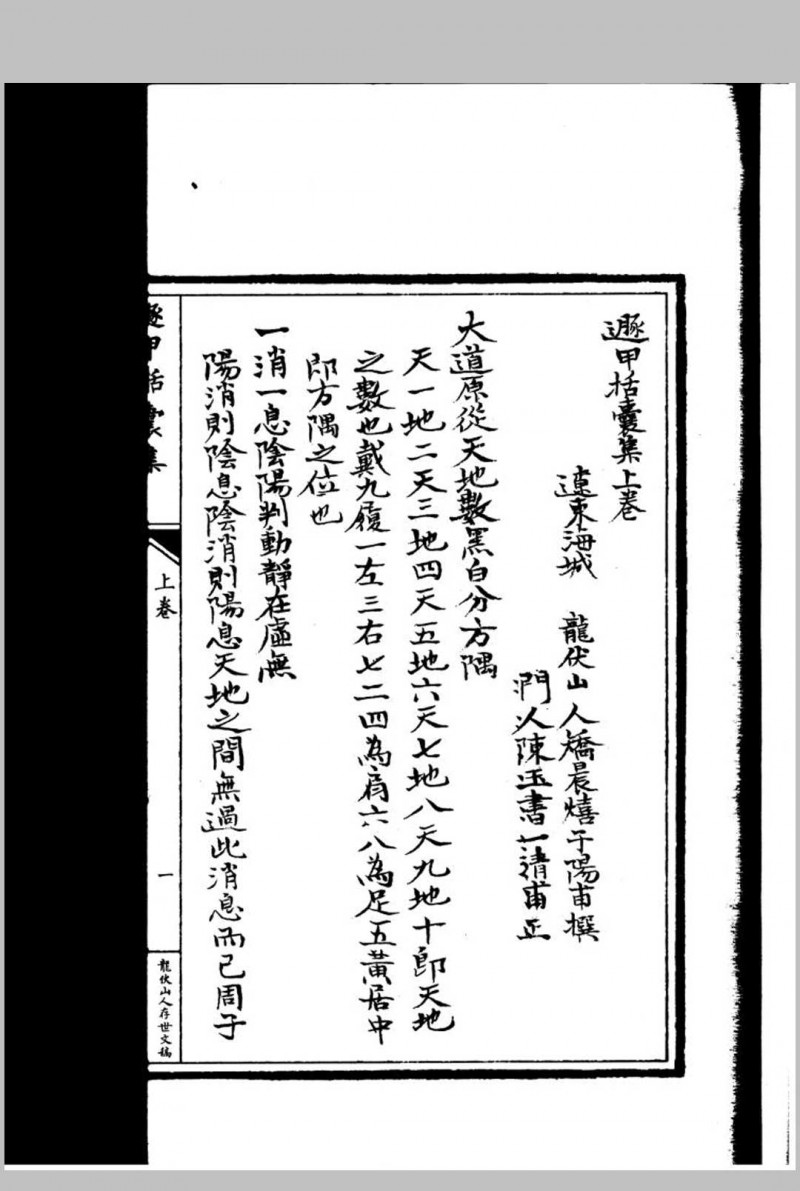 遯甲括囊集上卷
遼東海城　龍伏山人矯晨熺子陽甫撰
門人陳玉書一清甫正
大道原從天地數黑白分方隅
天一地二天三地四天五地六天七地八天九地十即天地
之數也戴九履一左三右七二四為肩六八為足五黃居中
即方隅之位也
一消一息陰陽判動靜在虛無
陽消則陰息陰消則陽息天地之間無過此消息而已周子
遯甲括囊集
上卷
一
龍伏山人存世文稿